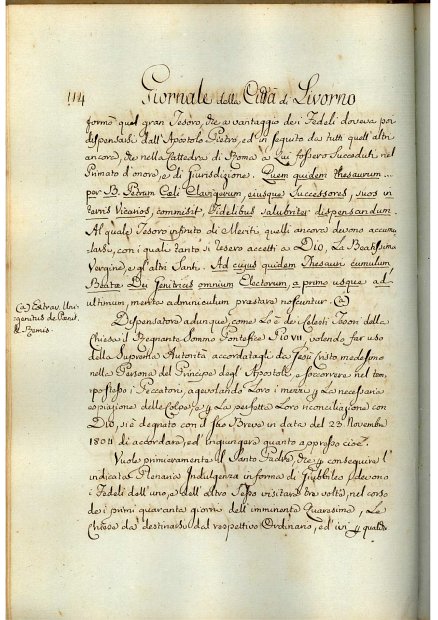 114 Giornale della Città di Livorno
formò quel gran Tesoro, che a vantaggio dei Fedeli doveva poi
dispensarsi dall'Apostolo Pietro, ed in seguito da tutti quell'altri
ancora, che nella Cattedra di Roma a Lui fossero Succeduti nel
Primato d'onore, e di Giurisdizione. Quem quidem thesaurum ...
per B. Petrum Cœli Clavigerum, eiusque Successores, suos in
terris Vicarios, commisit, Fidelibus salubriter dispensandum.
Al quale Tesoro infinito di Meriti, quelli ancora devono accumu-
larsi, con i quali tanto si resero accetti a Dio, La Beatissima
Vergine, e gl'altri Santi. Ad cujus quidem Thesauri cumulum
Beatæ Dei Genitricis omnium Electorum, a primo usque ad
ultimum, merita adminiculum praestare noscuntur. (a)
(a) Extrav. Uni-
genitus de Pœnit.
& Remis.
Dispensatore adunque, come Lo è dei Celesti Tesori della
Chiesa il Regnante Sommo Pontefice Pio VII, volendo far uso
della Suprema Autorità accordatagli da Gesù Cristo medesimo
nella Persona del Principe degl'Apostoli, e soccorrere nel tem-
po stesso i Peccatori, agevolando Loro i mezzi p La necessaria
espiazione delle Colpe, e p La perfetta Loro riconciliazione con
Dio, si è degnato con il suo Breve in data del 23 Novembre
1804 di accordare, ed ingiungere quanto appresso cioè.
Vuole primieramente il Santo Padre, che p conseguire l'
indicata Plenaria Indulgenza in forma di Giubbileo devono
i Fedeli dell'uno, e dell'altro Sesso visitare tre volte, nel corso
dei primi quaranta giorni dell'imminente Quaresima, Le
Chiese da destinarsi dal respettivo Ordinario, ed ivi p qualche